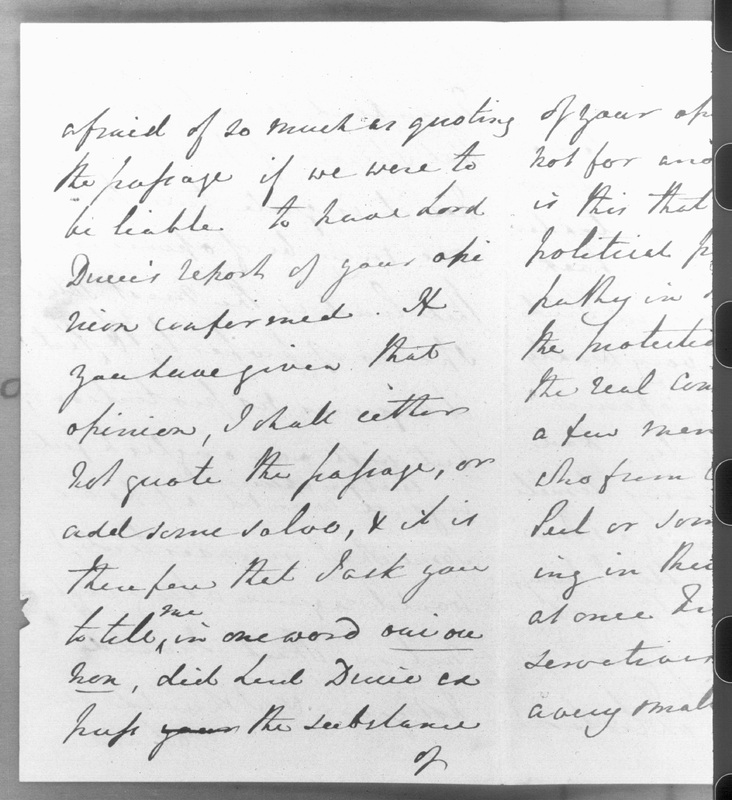 afraid of so much as quoting
the passage if we were to
be liable to have Lord
Ducie's report of your opi
nion confirmed. If
you have given that
opinion, I shall either
not quote the passage, or
add some salvo, & it is
therefore that I ask you
to tell me, in one word oui ou
non, did Lord Ducie ex
press your the substance
of
of your op
not for ano
is this that
political p
pathy in
the protectio
the real con
a few men
who from
Peel or som
ing in thei
at once
servatives
a very small